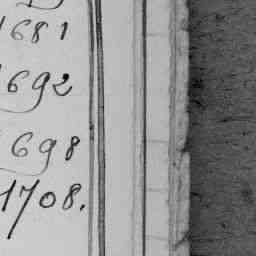 1681
1692
1698
1708.